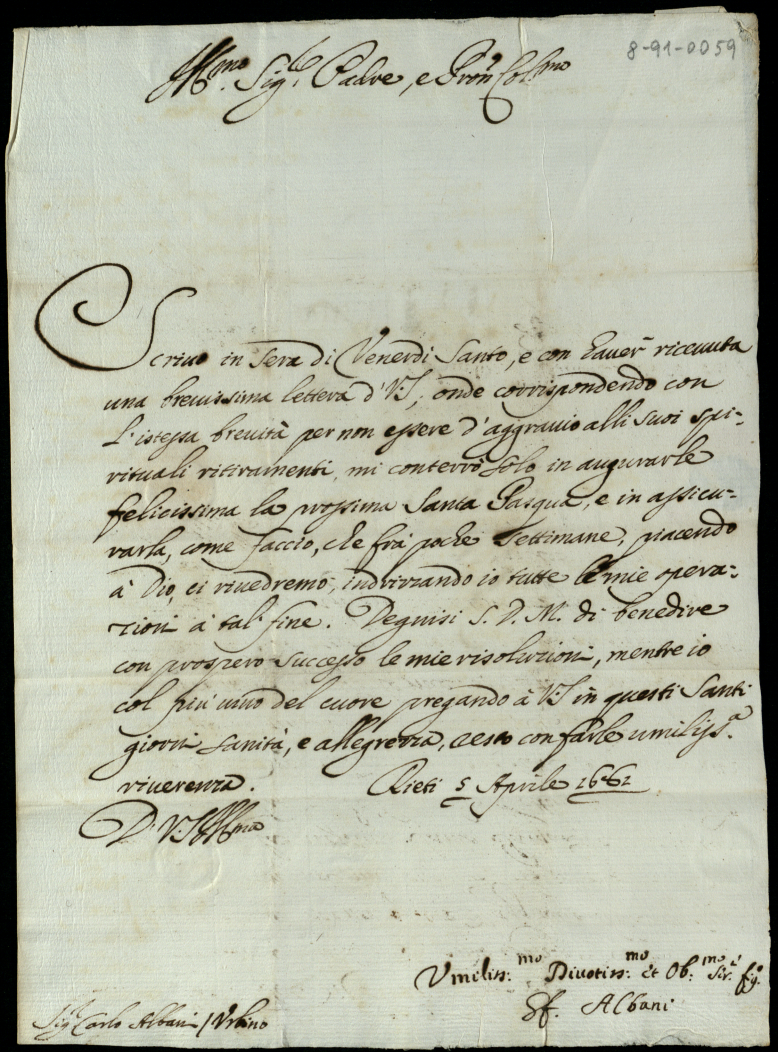 8-91-0059
Ill.mo Sig.re Padre, e Pron Col.mo
Scriuo in sera di Venerdi Santo, e con hauer riceuuta
una breuissima lettera d'VS, onde corrispondendo con
l'istessa breuità per non essere d'aggrauio alli suoi spi-
rituali ritiramenti, mi conterrò solo in augurarle
felicissima la prossima Santa Pasqua, e in assicu-
rarla, come faccio, che frà poche settimane, piacendo
à Dio, ci riuedremo, indrizzando io tutte le mie opera-
zioni à tal fine. Degnisi S. D. M. di benedire
con prospero successo le mie risoluzioni, mentre io
col più uiuo del cuore pregando à VS in questi Santi
giorni sanità, e allegrezza, resto con farle umiliss.a
riuerenza. Rieti 5 Aprile 1662
D. VS Ill.ma
Vmiliss:mo Diuotiss:mo et Ob:mo Ser.e fig.o
Gf. Albani
Sig.r Carlo Albani / Vrbino